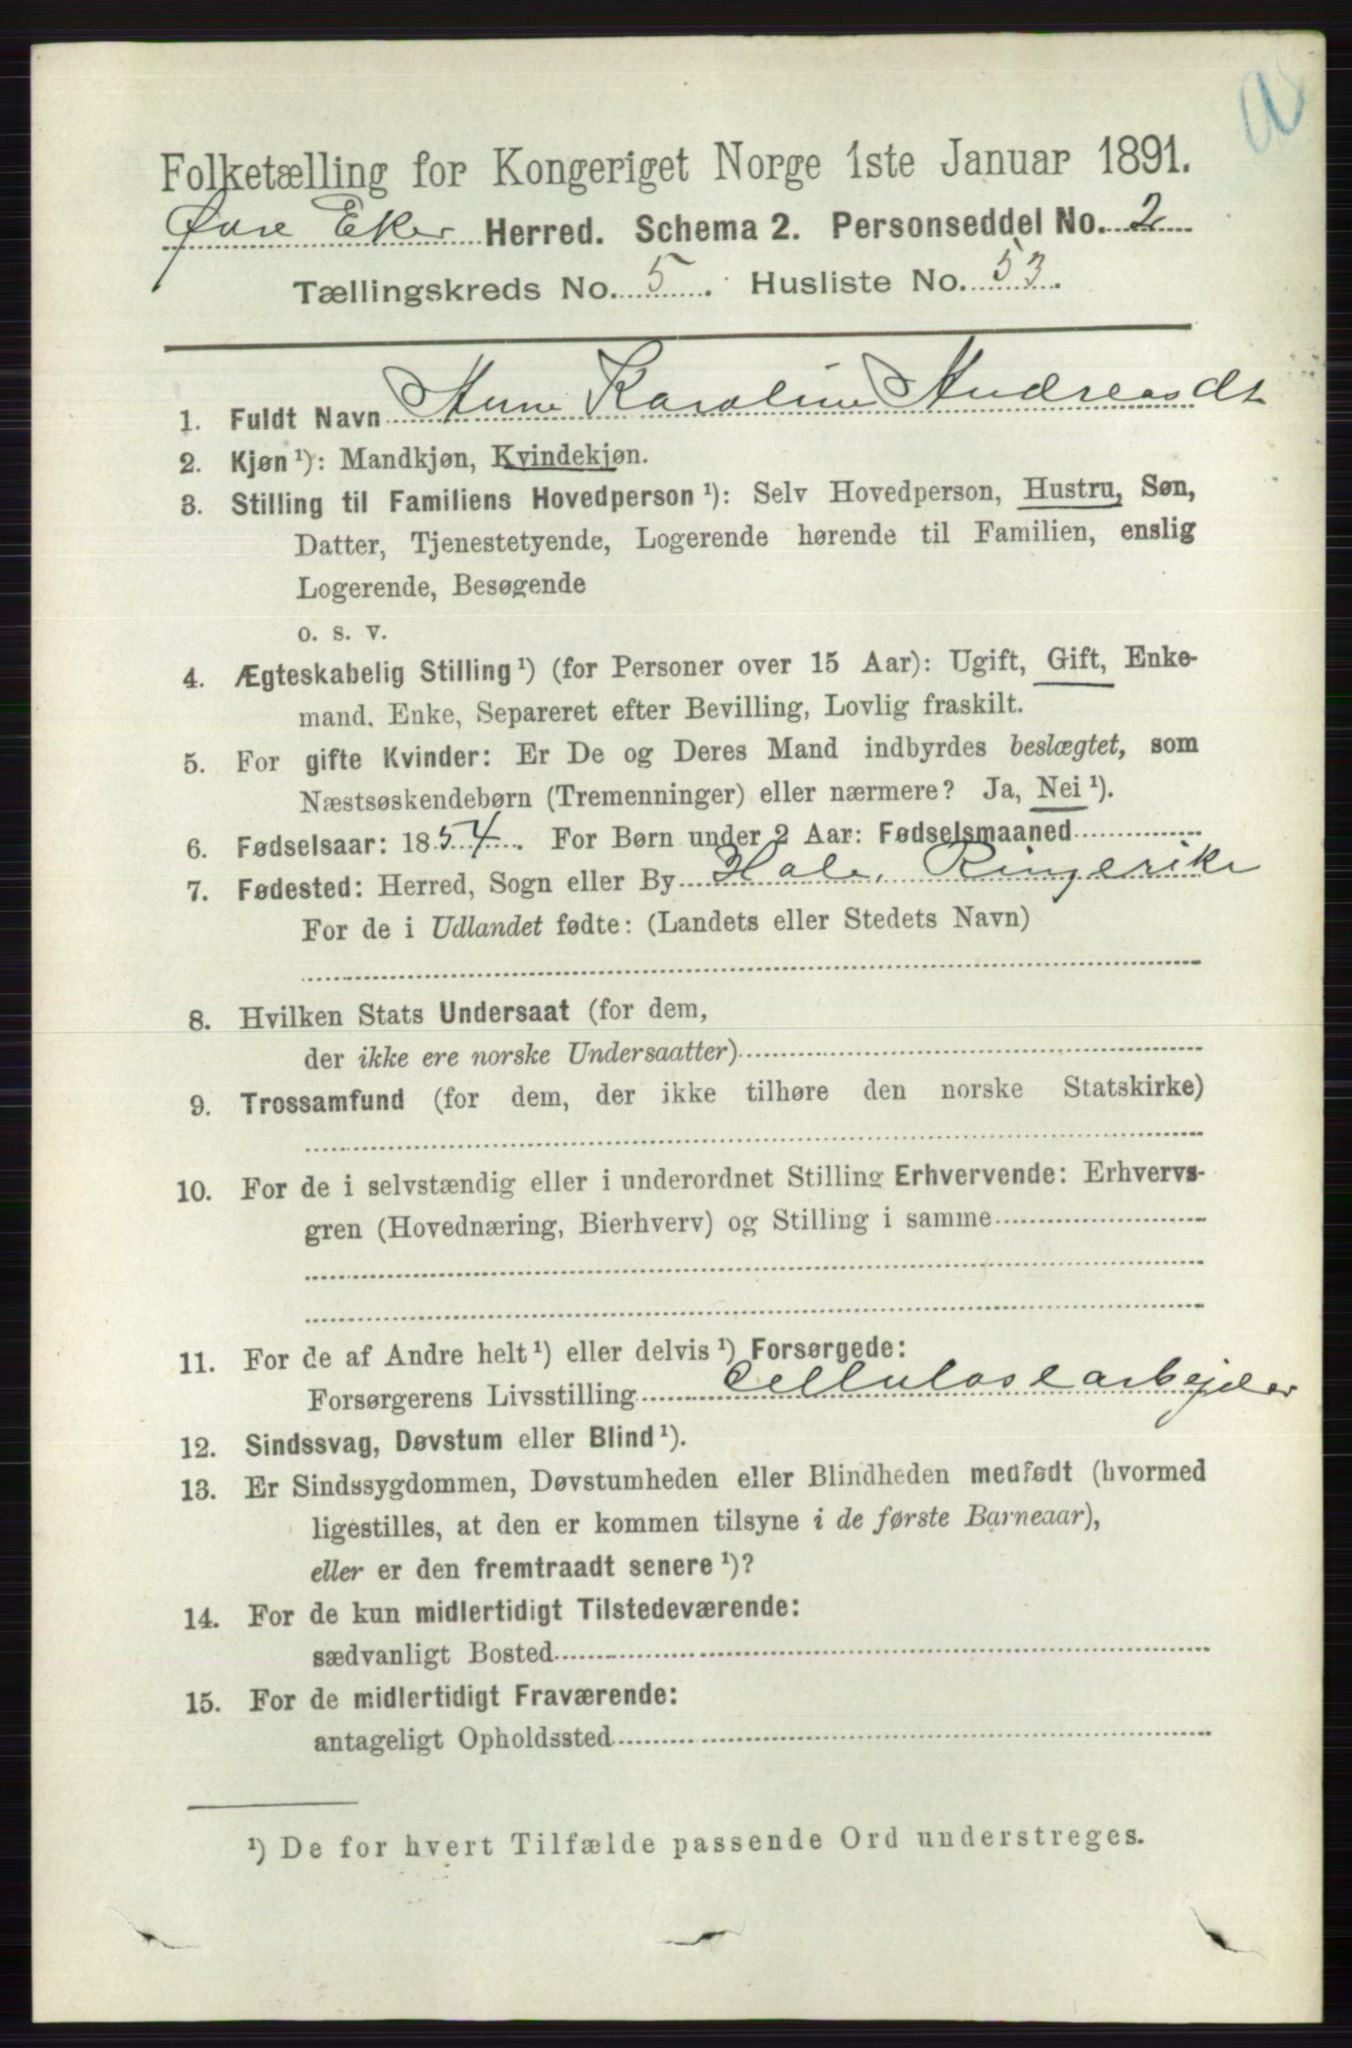 Folketælling for Kongeriget Norge 1ste Januar 1891.
Øvre Eker Herred. Schema 2. Personseddel No. 2
Tællingskreds No. 5. Husliste No. 53.
1. Fuldt Navn Anne Karoline Andreasdt
2. Kjøn ¹): Mandkjøn, Kvindekjøn.
3. Stilling til Familiens Hovedperson ¹): Selv Hovedperson, Hustru, Søn,
Datter, Tjenestetyende, Logerende hørende til Familien, enslig
Logerende, Besøgende
o. s. v.
4. Ægteskabelig Stilling ¹) (for Personer over 15 Aar): Ugift, Gift, Enke-
mand, Enke, Separeret efter Bevilling, Lovlig fraskilt.
5. For gifte Kvinder: Er De og Deres Mand indbyrdes beslægtet, som
Næstsøskendebørn (Tremenninger) eller nærmere? Ja, Nei ¹).
6. Fødselsaar: 1854. For Børn under 2 Aar: Fødselsmaaned
7. Fødested: Herred, Sogn eller By Hole, Ringerike
For de i Udlandet fødte: (Landets eller Stedets Navn)
8. Hvilken Stats Undersaat (for dem,
der ikke ere norske Undersaatter)
9. Trossamfund (for dem, der ikke tilhøre den norske Statskirke)
10. For de i selvstændig eller i underordnet Stilling Erhvervende: Erhvervs-
gren (Hovednæring, Bierhverv) og Stilling i samme
11. For de af Andre helt ¹) eller delvis ¹) Forsørgede:
Forsørgerens Livsstilling Cellulosearbejder
12. Sindssvag, Døvstum eller Blind ¹).
13. Er Sindssygdommen, Døvstumheden eller Blindheden medfødt (hvormed
ligestilles, at den er kommen tilsyne i de første Barneaar),
eller er den fremtraadt senere ¹)?
14. For de kun midlertidigt Tilstedeværende:
sædvanligt Bosted
15. For de midlertidigt Fraværende:
antageligt Opholdssted
¹) De for hvert Tilfælde passende Ord understreges.